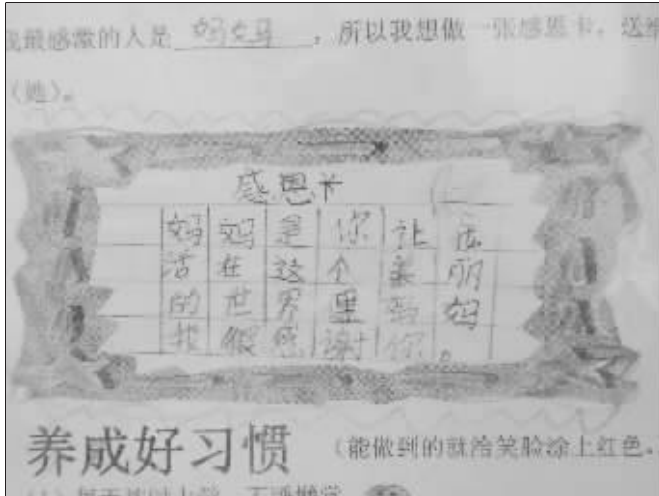 最感激的人是 妈妈 ，所以我想做一张感恩卡，送
（她）。
感恩卡
妈妈是你让
活在这个美丽
的世界里妈
我很感谢你。
养成好习惯 （能做到的就给笑脸涂上红色。